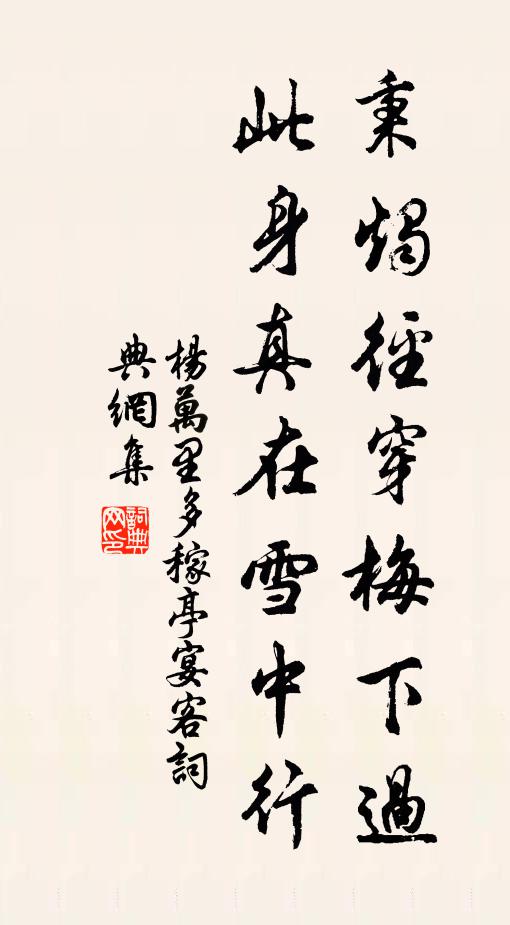 秉燭徑穿梅下過
此身真在雪中行
楊萬里多稼亭宴客詞
典網集
詞典網印